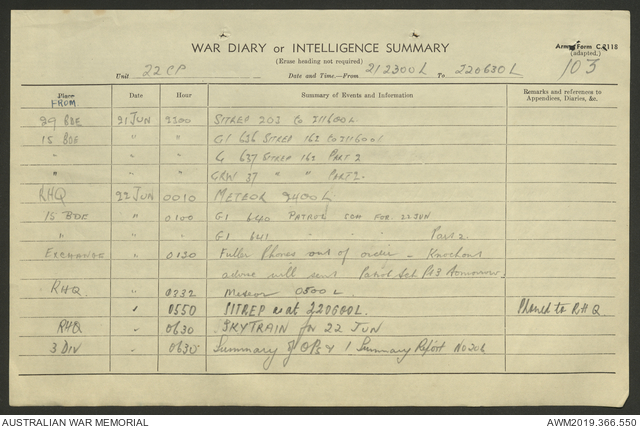 WAR DIARY or INTELLIGENCE SUMMARY
Army Form C.2118
(adapted.)
(Erase heading not required)
103
Unit 22 CP Date and Time.—From 212300L To 220630L
Place Date Hour Summary of Events and Information Remarks and references to Appendices, Diaries, &c.
FROM
29 BDE 21 JUN 2300 SITREP 203 to 211600L
15 BDE " " G1 636 SITREP 162 to 211600L
" " " G 637 SITREP 162 PART 2
" " " 37 " " PART 2.
RHQ 22 JUN 0010 METEOR 2400 L
15 BDE " 0100 G1 640 PATROL FOR 22 JUN
" " " G1 641 " " " Part 2
EXCHANGE " 0130 Fuller Phones out of order –
advise will send Patrol Sch
RHQ. " 0332 Meteor 0500 L.
" 0550 SITREP as at 220600L. Phoned to RHQ
RHQ " 0630 SKYTRAIN for 22 JUN
3 DIV " 0630 Summary of OPs 1 Summary Report No 206
AUSTRALIAN WAR MEMORIAL AWM2019.366.550